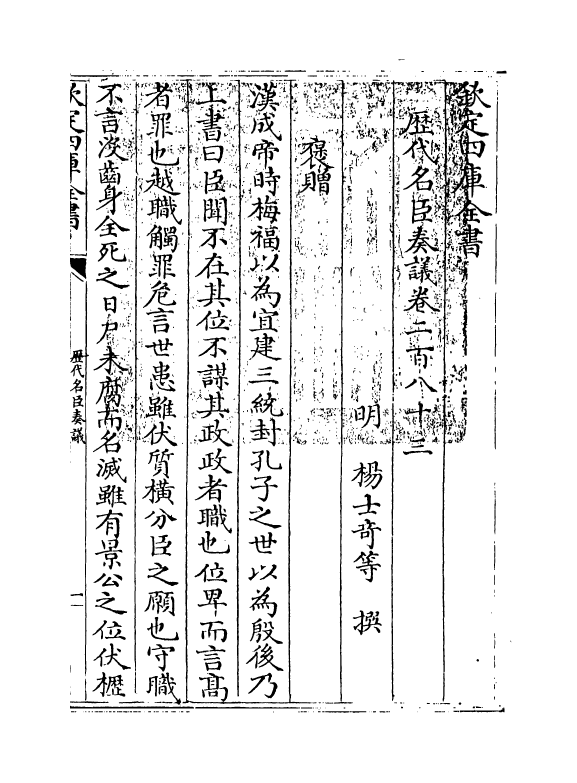 欽定四庫全書
歴代名臣奏議卷二百八十三
明　楊士奇等　撰
襃贈
漢成帝時梅福以為宜建三統封孔子之世以為殷後乃
上書曰臣聞不在其位不謀其政政者職也位卑而言髙
者罪也越職觸罪危言世患雖伏質橫分臣之願也守職
不言沒齒身全死之日尸未腐而名滅雖有景公之位伏櫪
欽定四庫全書
歴代名臣奏議
一